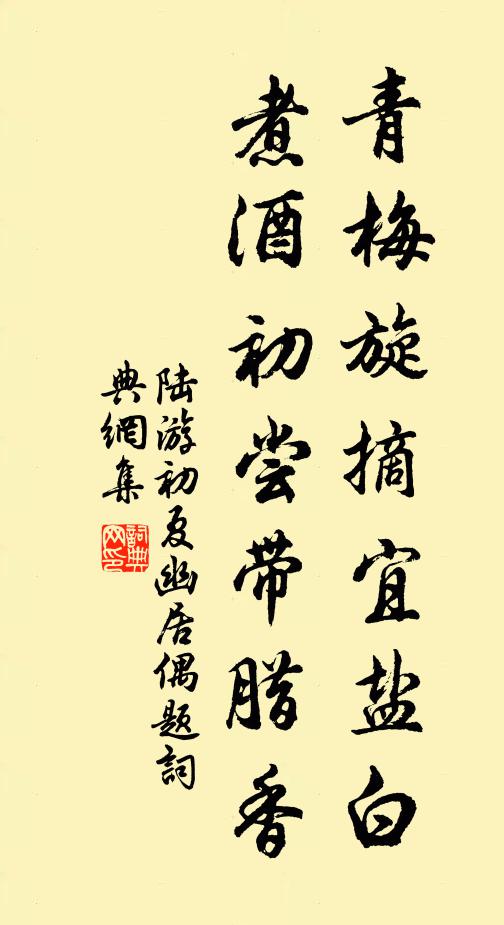 青梅旋摘宜盐白
煮酒初尝带腊香
陆游初夏幽居偶题詞
典網集
詞典
网印